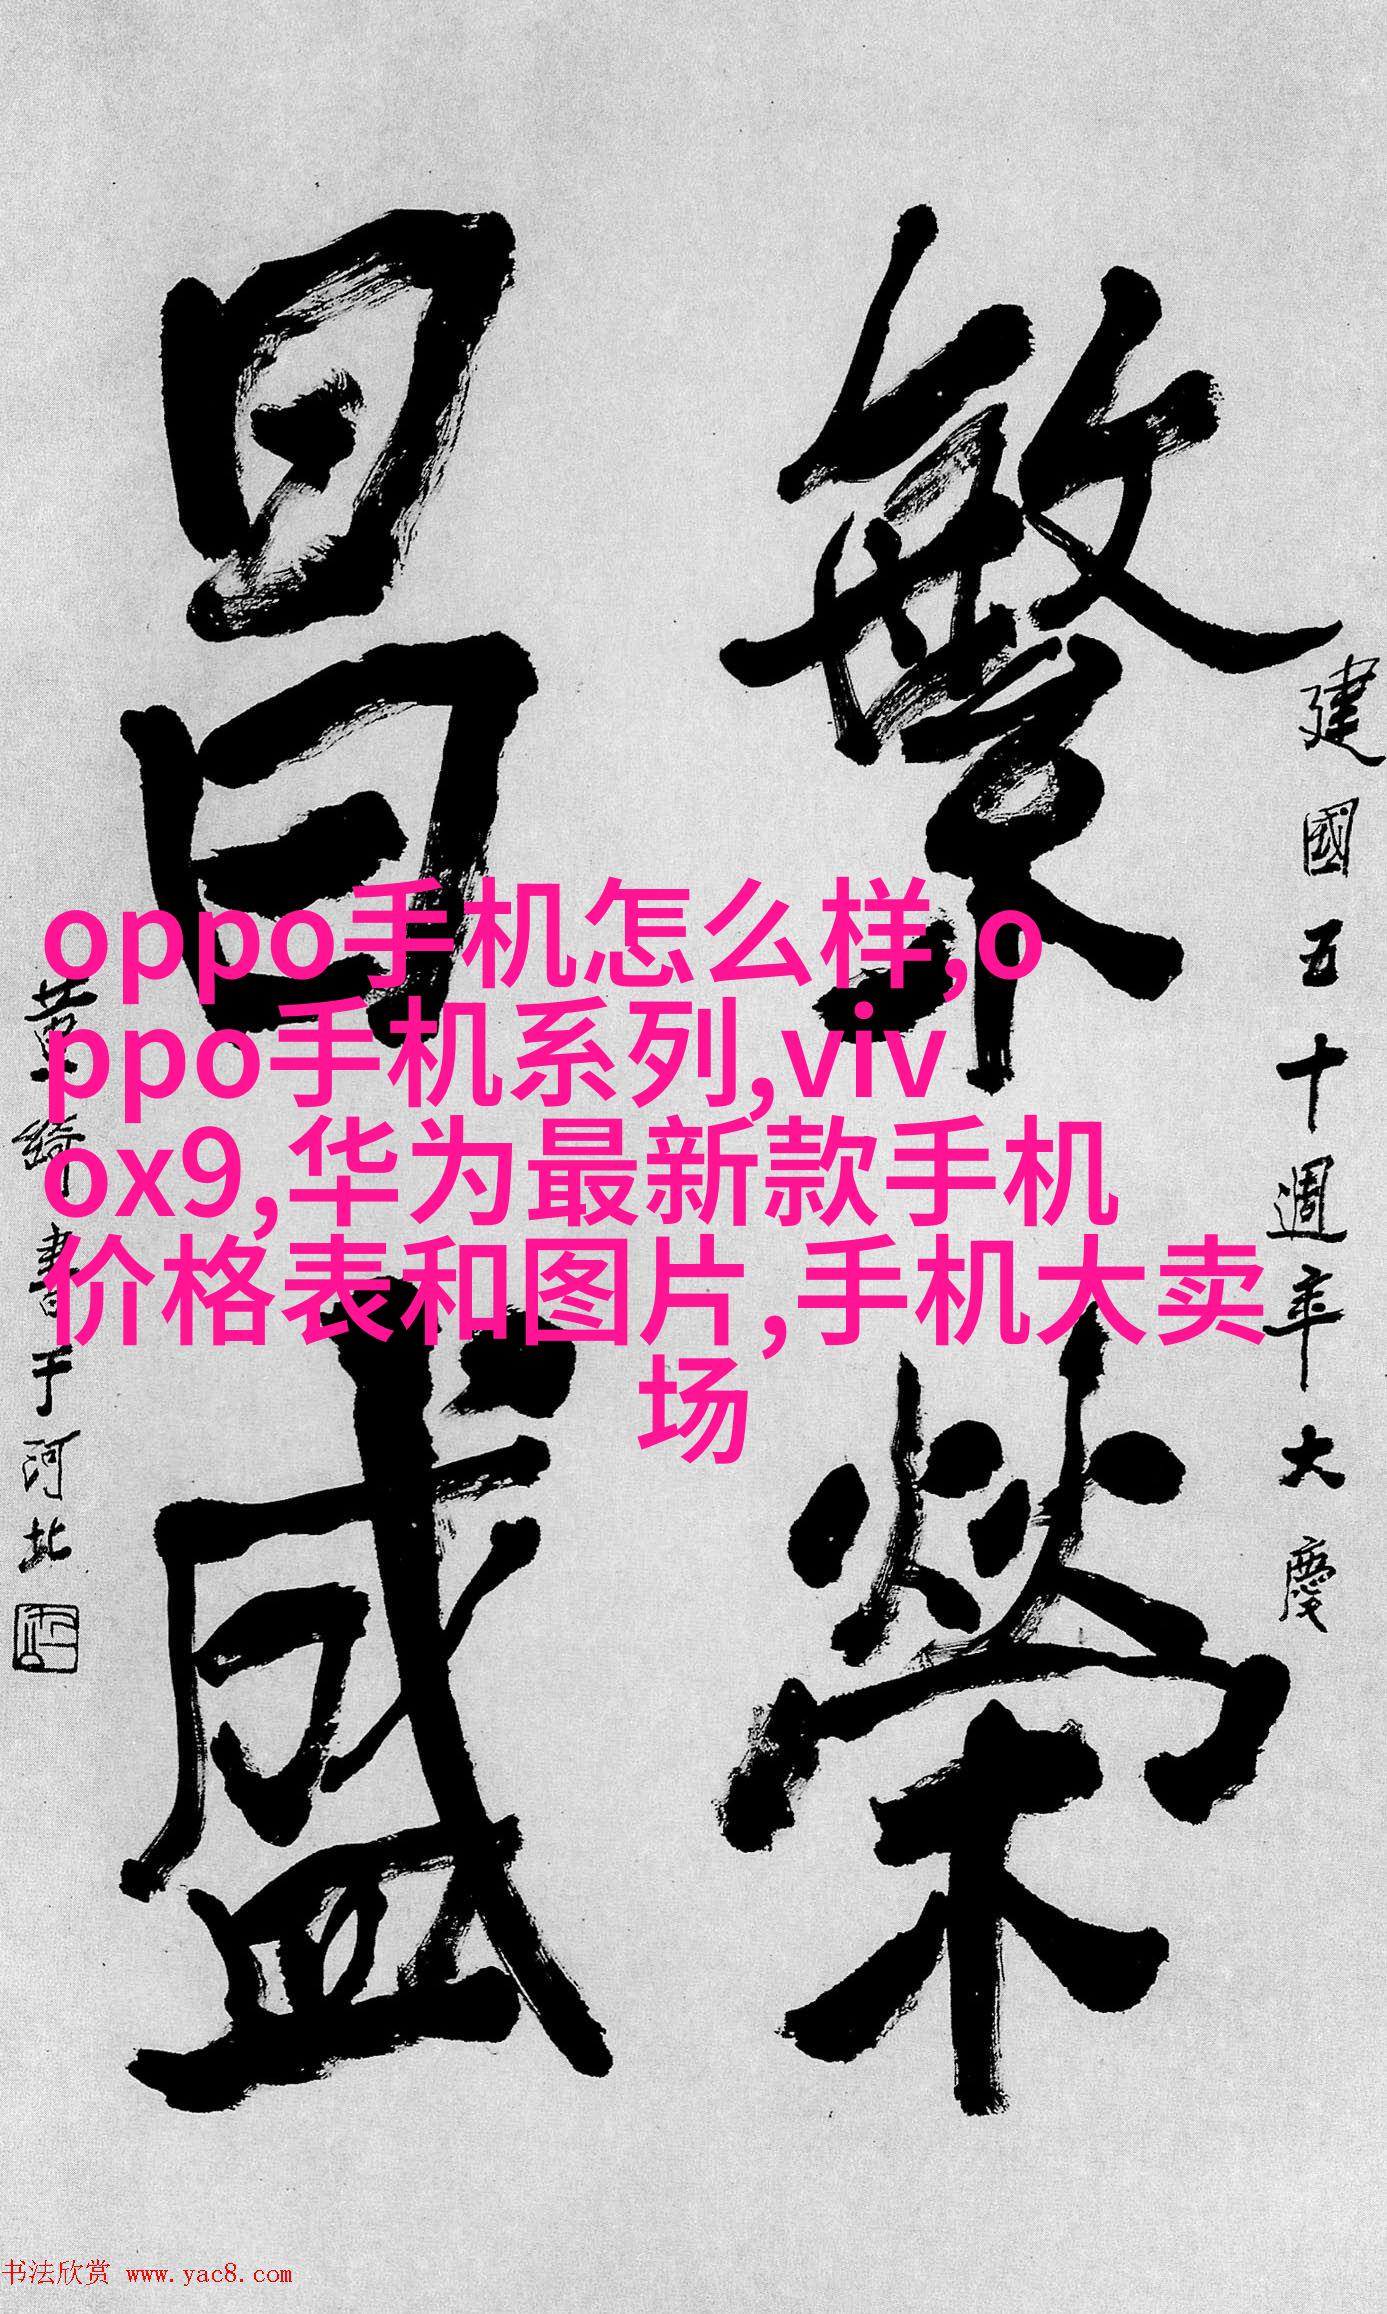 建國五十週年大慶
繁榮
昌盛
黄綺書于河北
oppo手机怎么样,o
ppo手机系列,viv
ox9,华为最新款手机
价格表和图片,手机大卖
场
书法欣赏 www.yac8.com